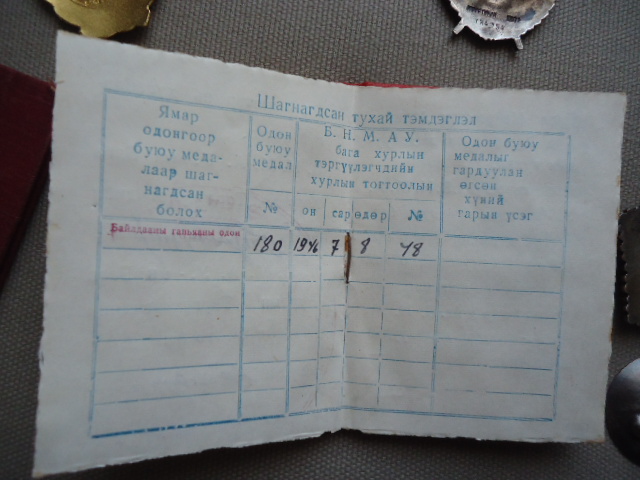 Шагнагдсан тухай тэмдэглэл
Ямар
одонгоор
буюу меда-
лаар шаг-
нагдсан
болох
Одон
буюу
медал
№
Б. Н. М. А. У.
бага хурлын
тэргүүлэгчдийн
хурлын тогтоолын
он сар өдөр №
Одон буюу
медалыг
гардуулан
өгсөн
хүний
гарын үсэг
Байлдааны гавьяаны одон
180 1946 7 8 48